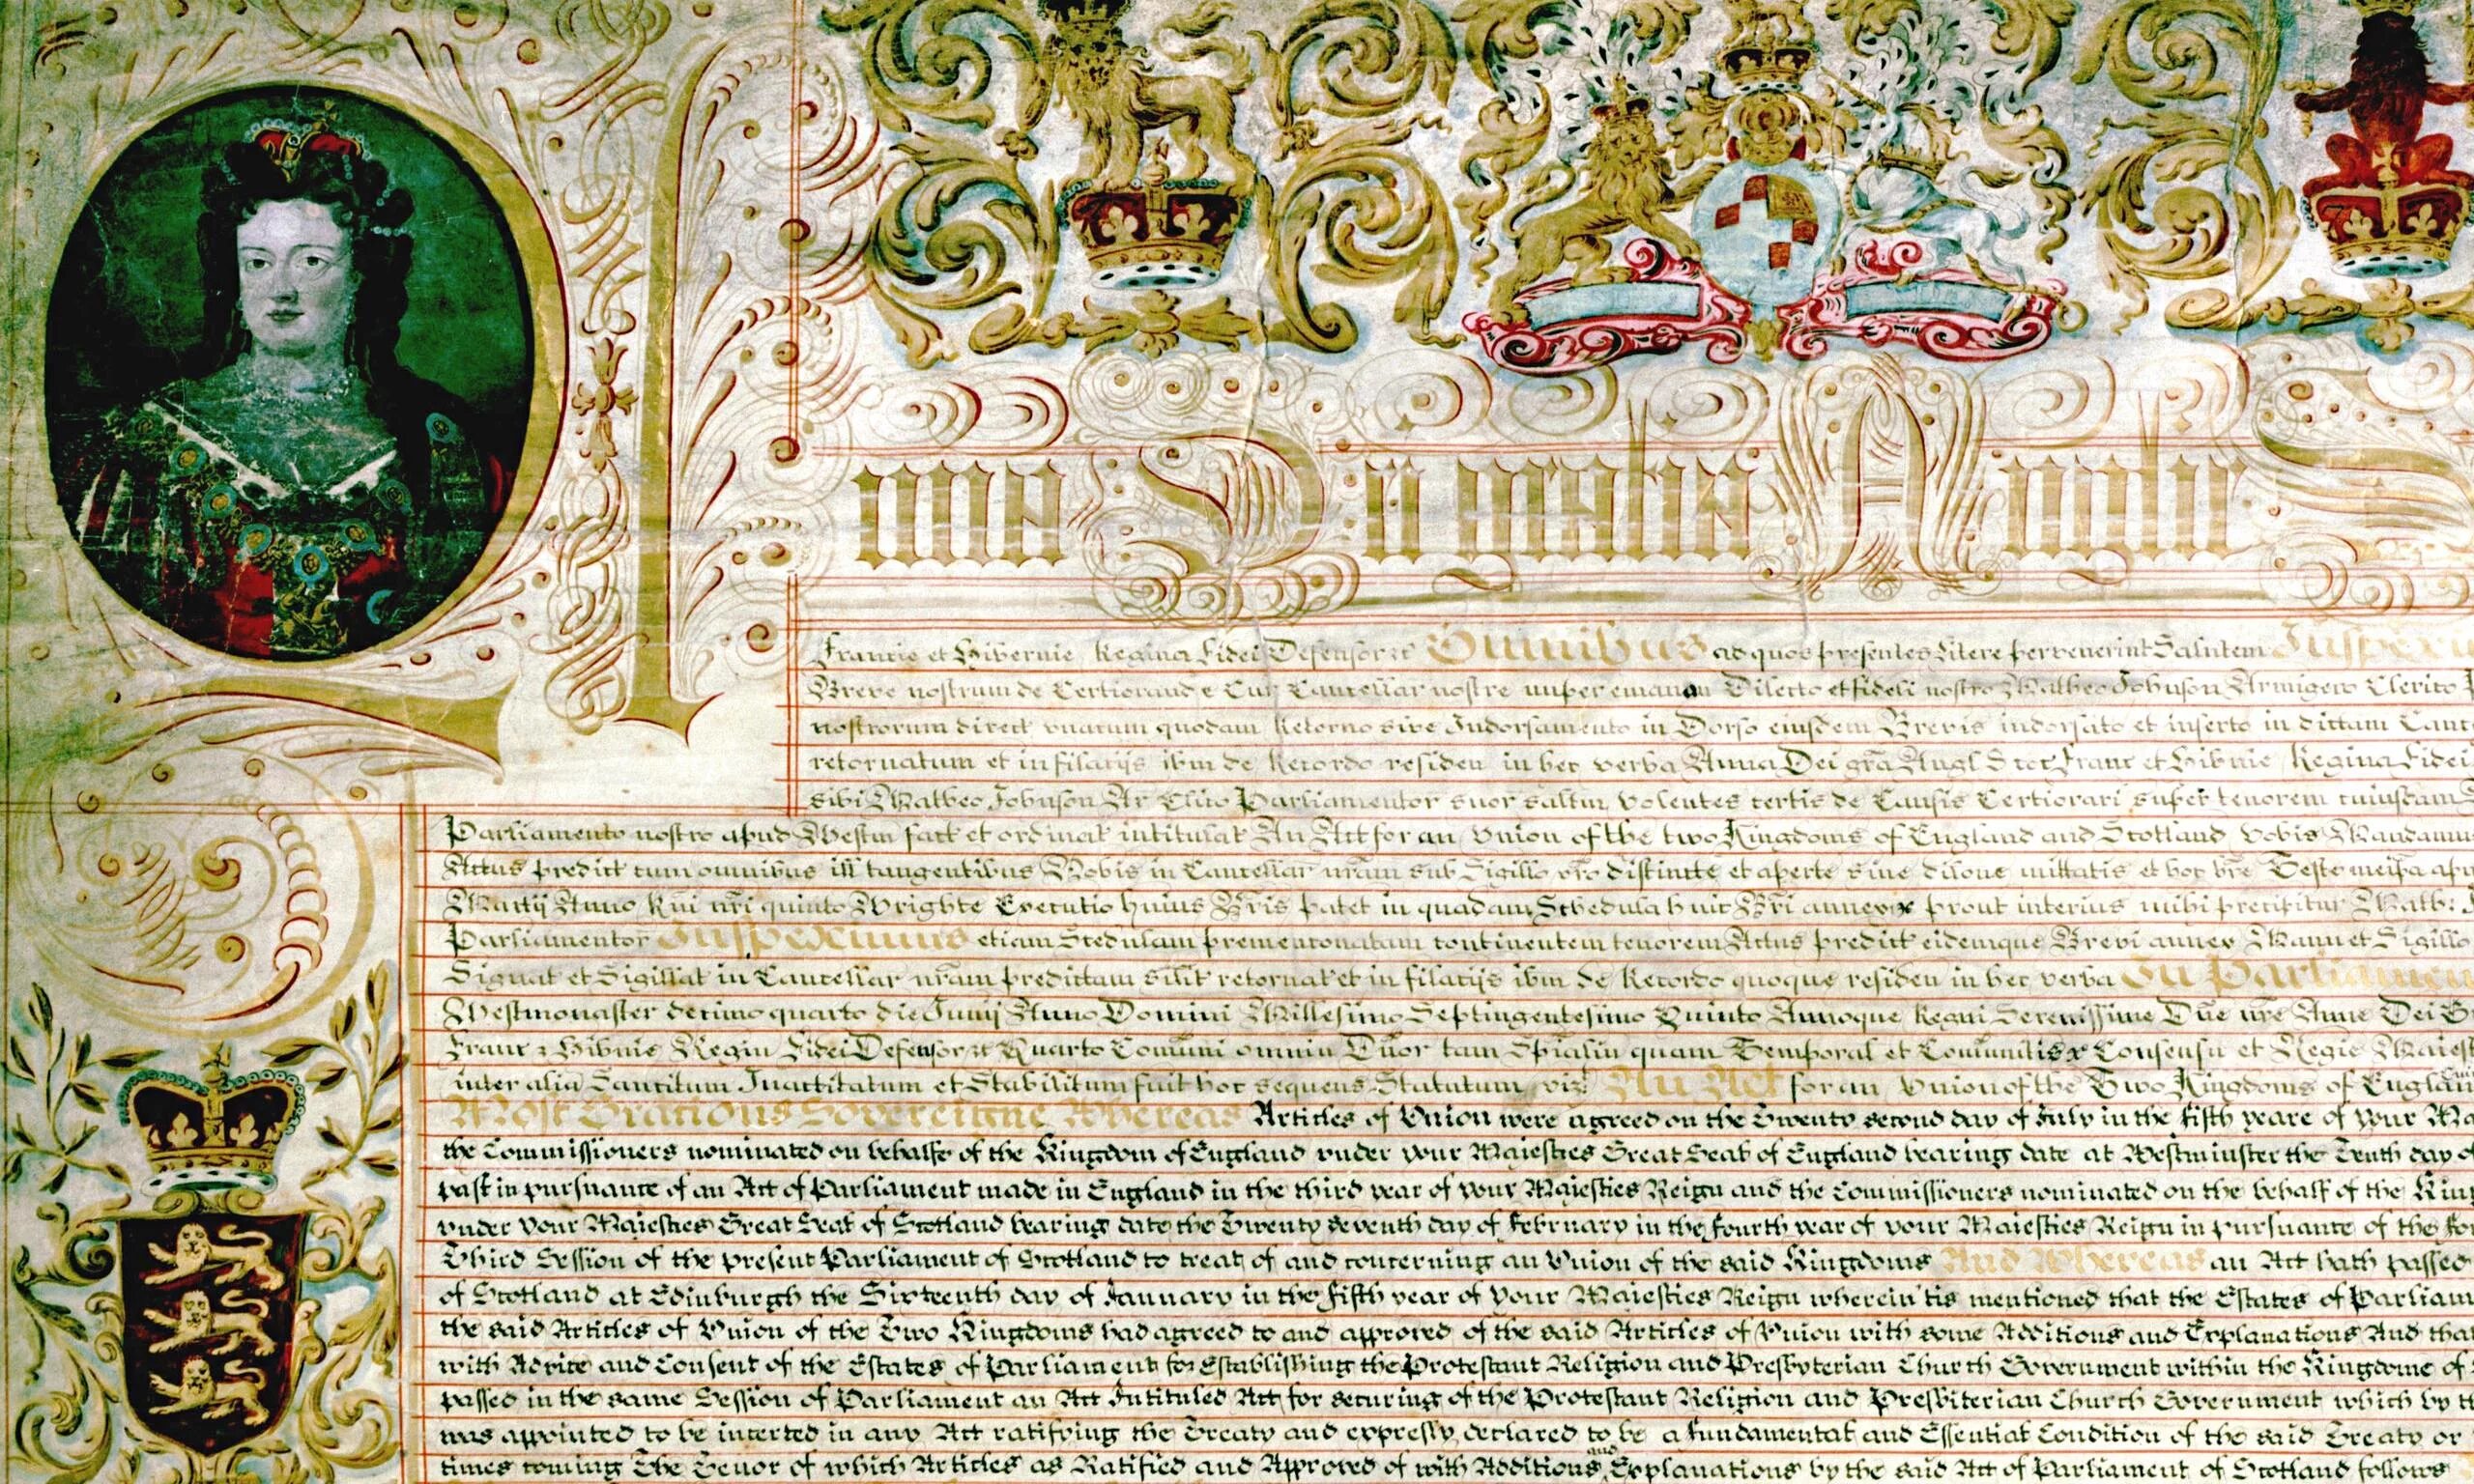 Anna Dei gratia Anglie S
Francie et Hibernie Regina Fidei Defensor &c Omnibus ad quos presentes litere pervenerint Salutem Inspexi
Breve nostrum de Certiorand e Cur Cancellar nostre nuper emanan Dilecto et fideli nostro Matheo Johnson Armigero Clerico
nostrorum direct unacum quodam Retorno sive Indorsamento in Dorso eiusdem Brevis indorsato et inserto in dictam Canc
retornatum et in filaciis ibm de Recordo residen in hec verba Anna Dei gra Angl Scoc Franc et Hibnie Regina Fidei
sibi Matheo Johnson Ar Clico Parliamentor suor saltm volentes certis de Causis Certiorari super tenorem cuiusdam
Parliamento nostro apud Westm fact et ordinat intitulat An Act for an Union of the two Kingdoms of England and Scotland vobis Mandamu
Actus predict cum omnibus ill tangentibus Nobis in Cancellar nram sub Sigillo vro distincte et aperte sine dilone mittatis et hoc bre Teste meipsa apu
Martij Anno Rni nri quinto Wrighte Executio huius Bris patet in quadam Schedula huic Bri annex prout interius mihi precipitur Math:
Parliamentor Inspeximus etiam Scedulam prementonatam continentem tenorem Actus predict eidemque Brevi annex Manu et Sigillo
Signat et Sigillat in Cancellar nram predictam silit retornat et in filacijs ibm de Recordo quoque residen in hec verba In Parliamen
Westmonaster decimo quarto die Junij Anno Domini Millesimo Septingentesimo Quinto Annoque Regni Serenissime Dne nre Anne Dei G
Franc & Hibnie Regin Fidei Defensor &c Quarto Comuni omniu Dnor tam Spialiu quam Temporal et Comunitis Consensu et Regie Maiest
inter alia Sancitum Inactitatum et Stabilitum fuit hoc sequens Statutum viz An Act for an Union of the Two Kingdoms of Englan
Most Gracious Sovereigne Whereas Articles of Union were agreed on the Twenty second day of July in the fifth yeare of your Ma
the Commissioners nominated on behalfe of the Kingdom of England under your Majesties Great Seal of England bearing date at Westminster the Tenth day of
past in pursuance of an Act of Parliament made in England in the third year of your Majesties Reign and the Commissioners nominated on the behalf of the King
under your Majesties Great Seal of Scotland bearing date the Twenty seventh day of February in the fourth year of your Majesties Reign in pursuance of the fo
Third Session of the present Parliament of Scotland to treat of and concerning an Union of the said Kingdoms And Whereas an Act hath passed
of Scotland at Edinburgh the Sixteenth day of January in the fifth year of your Majesties Reign wherein tis mentioned that the Estates of Parliam
the said Articles of Union of the Two Kingdoms had agreed to and approved of the said Articles of Union with some Additions and Explanations And that
with Advice and Consent of the Estates of Parliament for Establishing the Protestant Religion and Presbyterian Church Government within the Kingdome of
passed in the same Session of Parliament an Act Intituled Act for securing of the Protestant Religion and Presbiterian Church Government which by th
was appointed to be inserted in any Act ratifying the Treaty and expressly declared to be a fundamental and Essential Condition of the said Treaty or
times coming The Tenor of which Articles as Ratified and Approved of with Additions and Explanations by the said Act of Parliament of Scotland follows